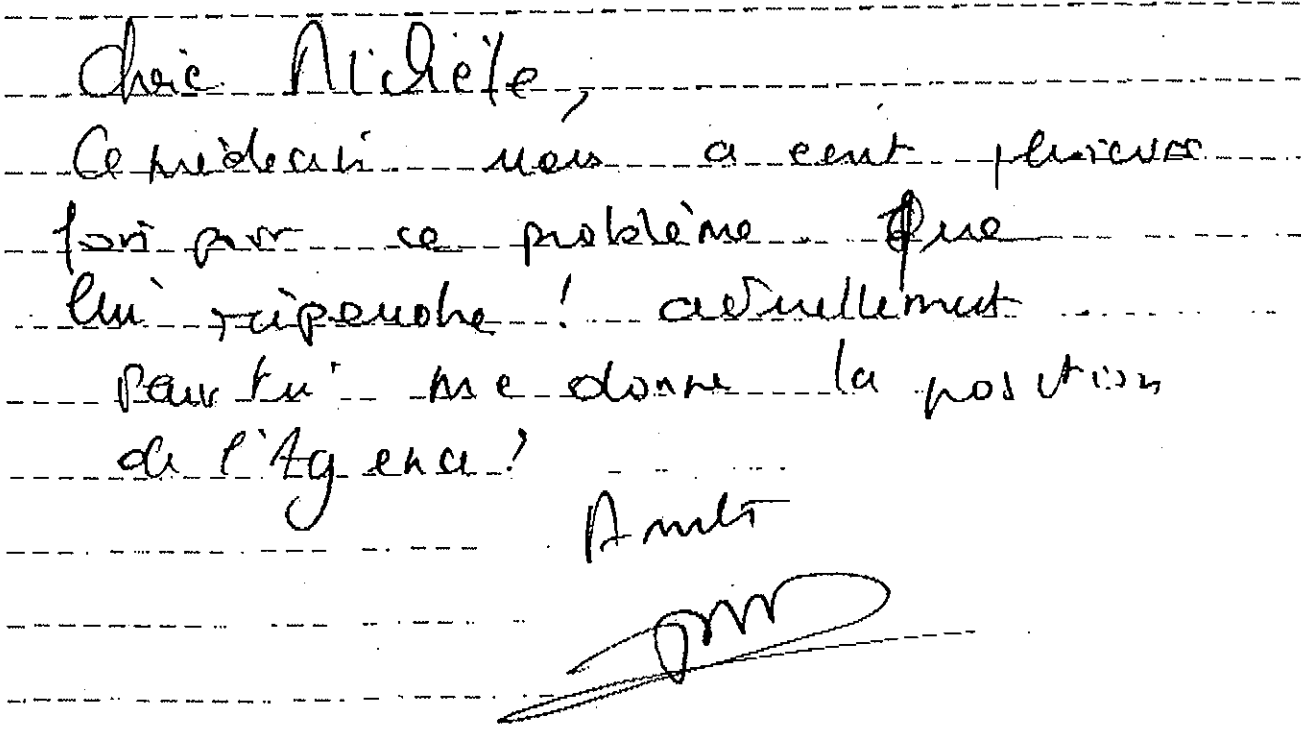 Chère Michèle,
Ce médecin nous a écrit plusieurs
fois pour ce problème Que
lui répondre ! actuellement
Peux tu me donner la position
de l'Agence !
Amitiés